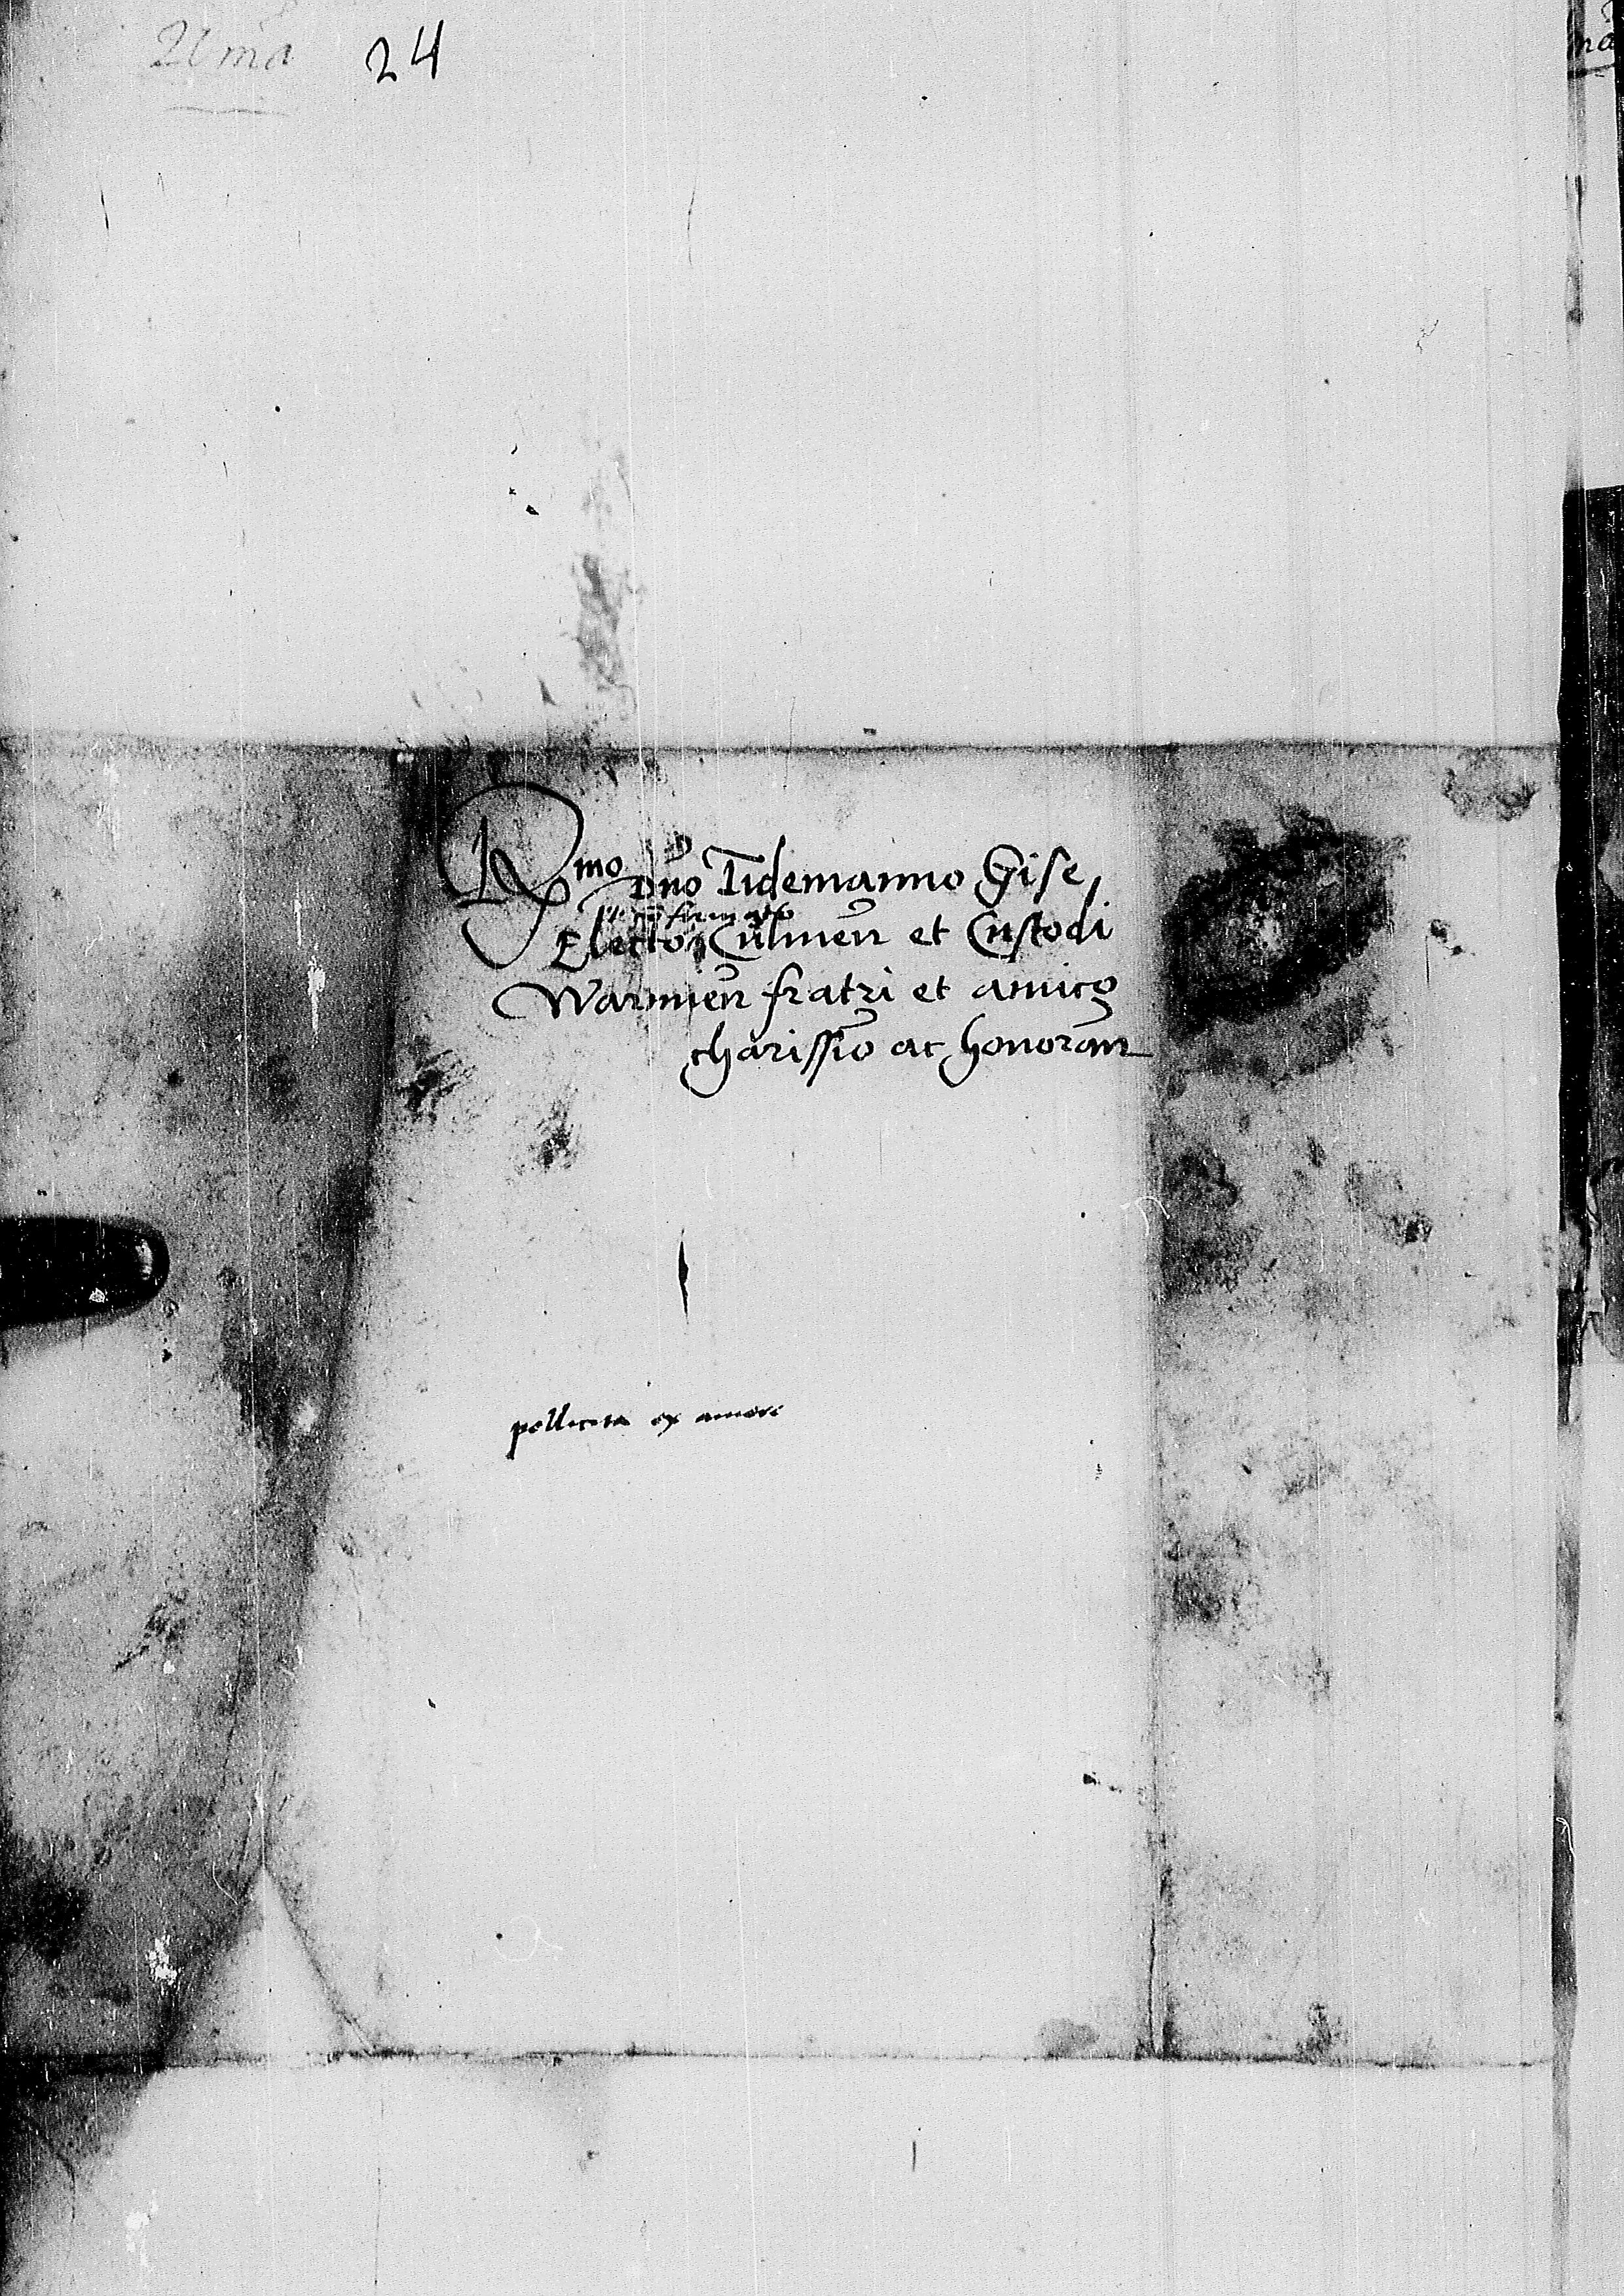 24
R mo Dno Tidemanno Gise
et confirmato
Electo Culmen et Custodi
Warmien fratri et amico
charissimo ac honoran
pollicita ex amore